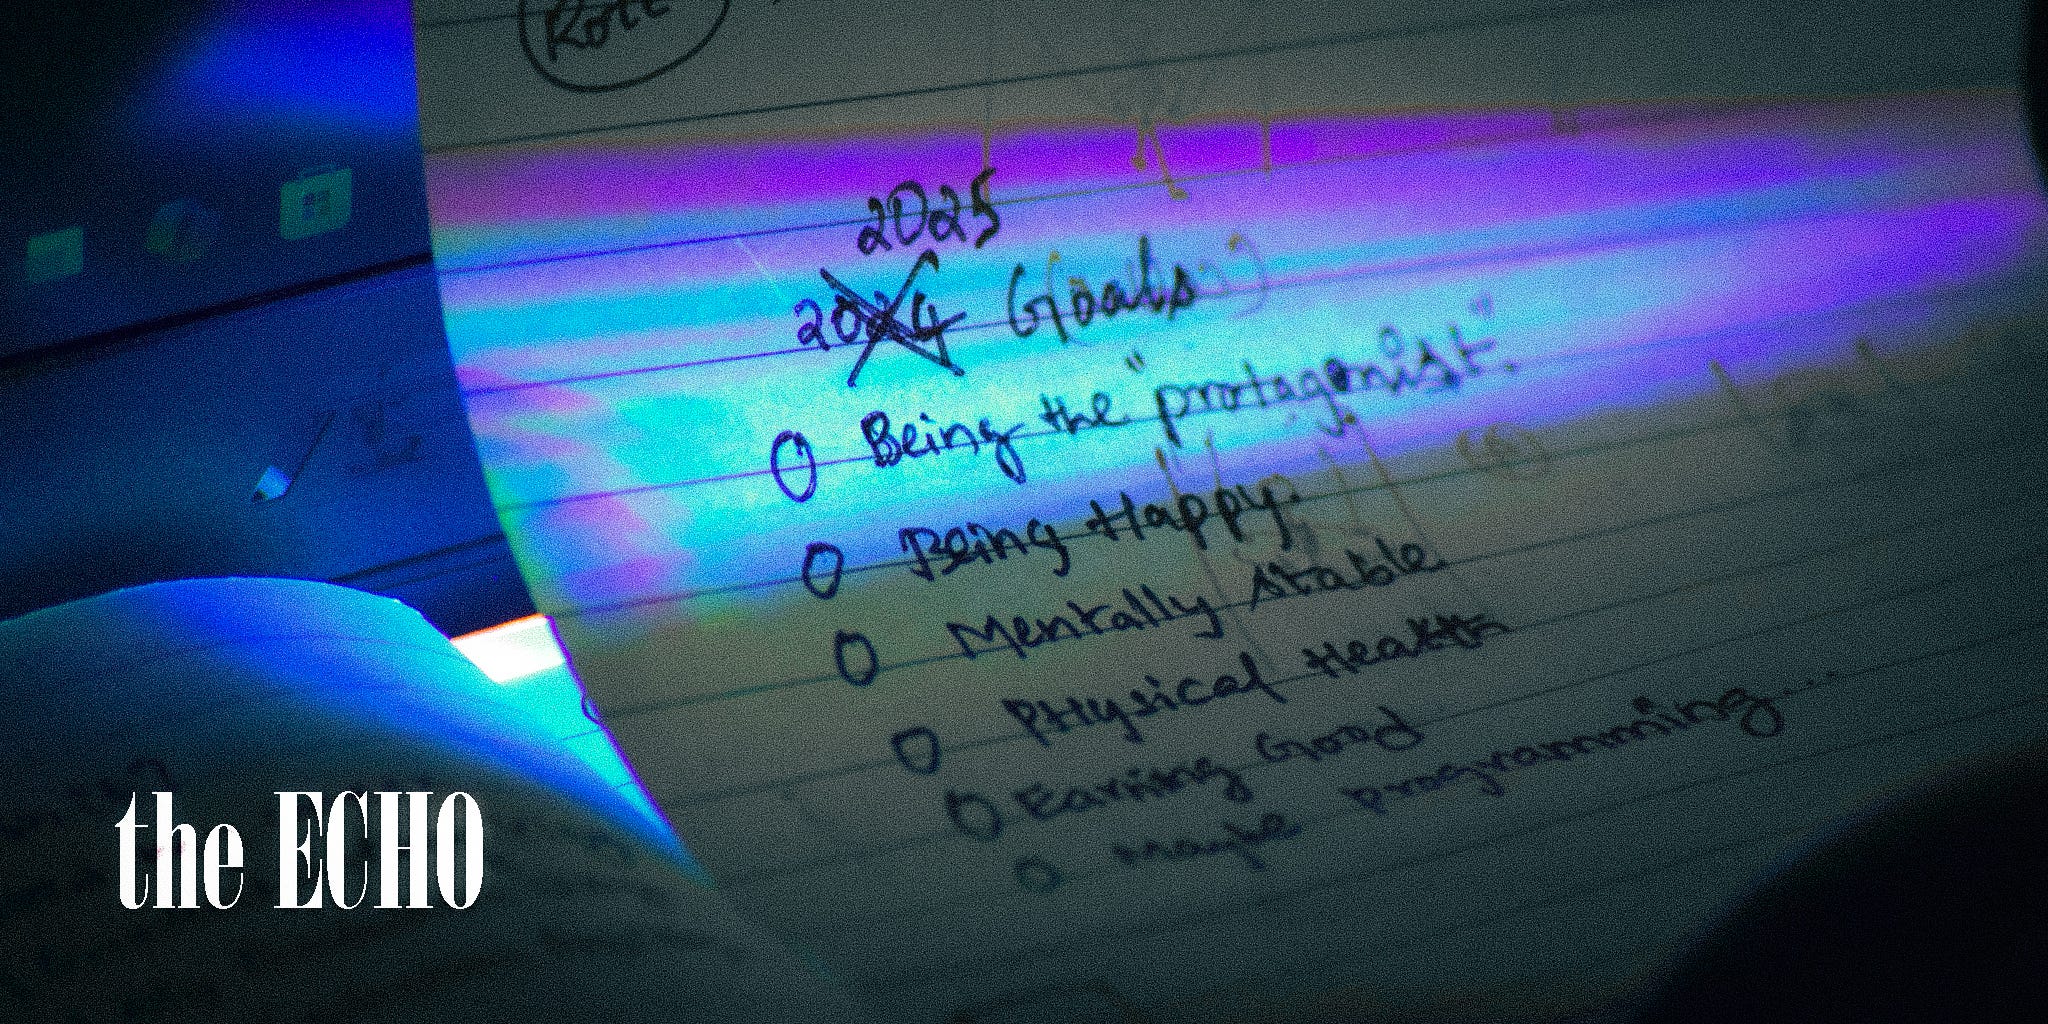 2025
2024 Goals
O Being the "protagonist".
O Being Happy.
O Mentally stable
O Physical Health
O Earning Good
O Maybe programming...
the ECHO